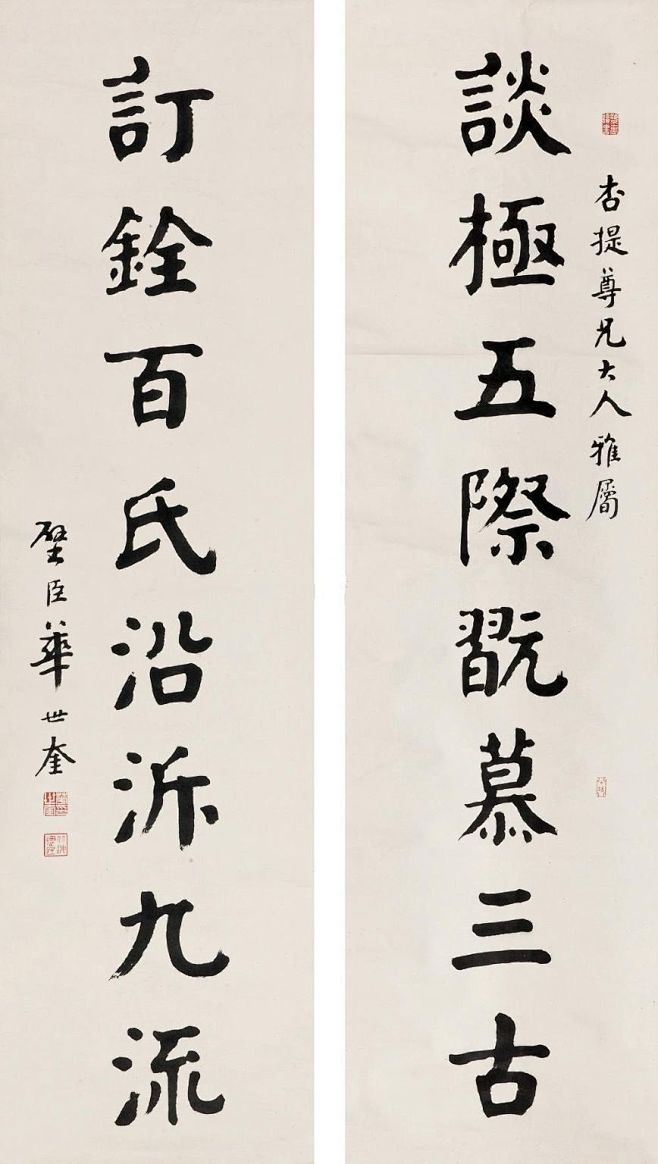 杏提尊兄大人雅屬
談極五際翫慕三古
訂銓百氏沿泝九流
璧臣華世奎